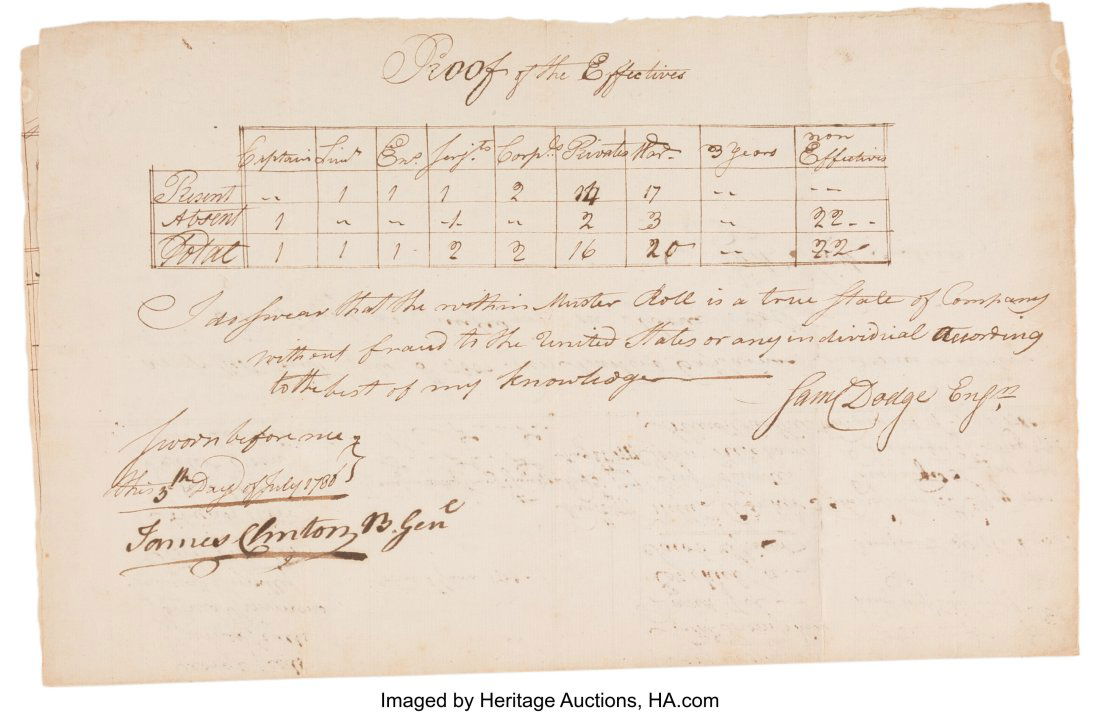 Proof of the Effectives
Captain Lieut Ens. Serjts Corpls Privates War. 3 Years non Effectives
Present -- 1 1 1 2 14 17 -- --
Absent 1 -- -- 1 -- 2 3 -- 22
Total 1 1 1 2 2 16 20 -- 22
I do Swear that the within Muster Roll is a true State of Company
without fraud to the United States or any individual according
to the best of my knowledge
Saml Dodge Engn
Sworn before me
this 5th Day of July 1780
James Clinton B. Genl
Imaged by Heritage Auctions, HA.com